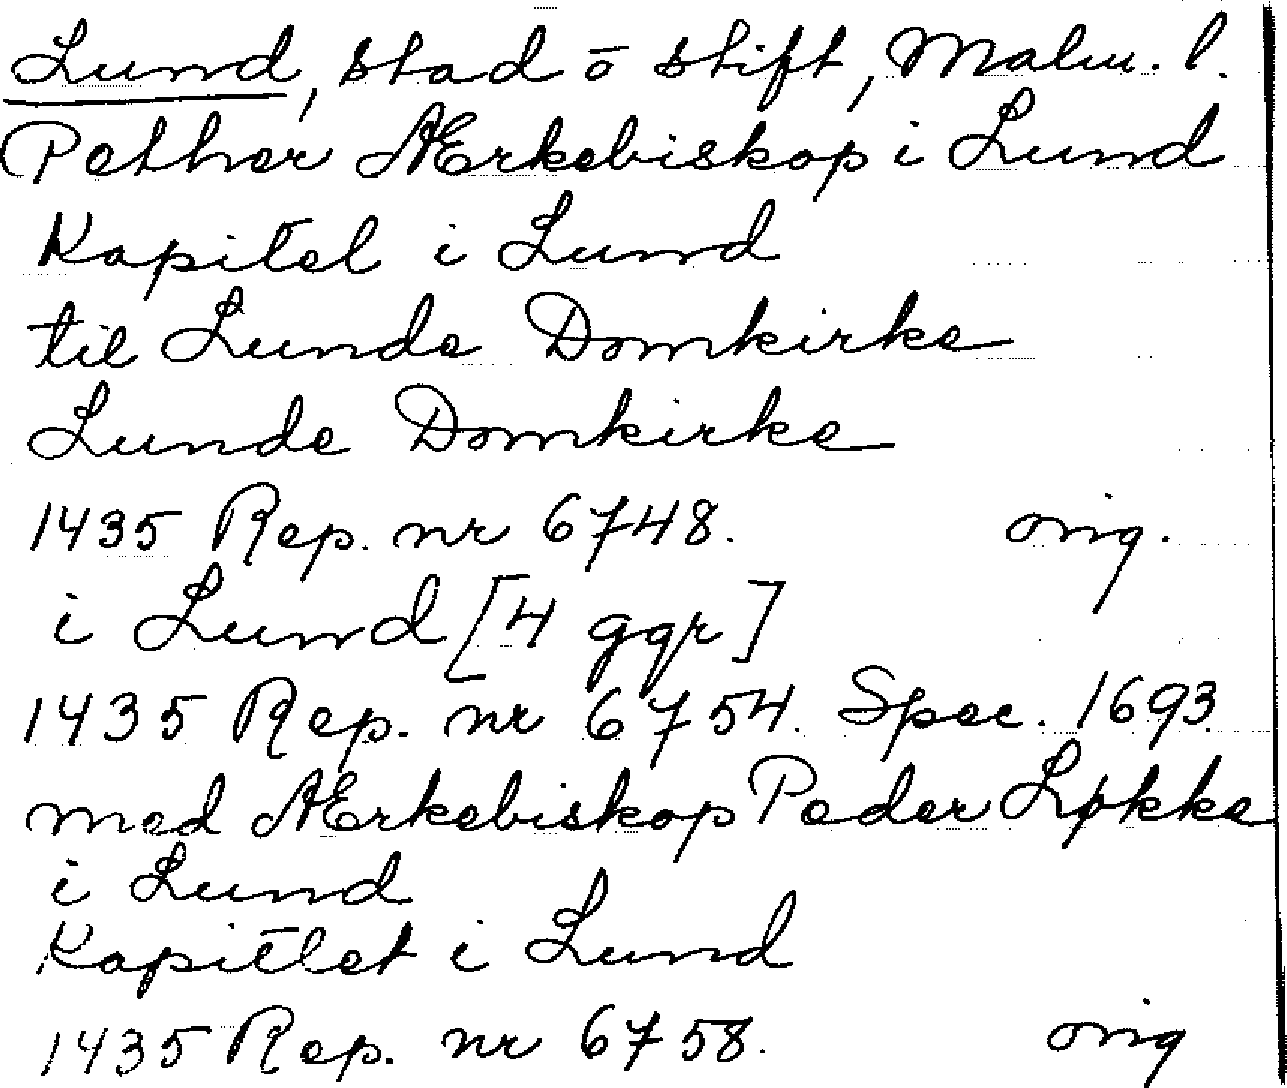 Lund, stad o stift, Malm. l.
Pether Ærkebiskop i Lund
Kapitel i Lund
til Lunde Domkirke
Lunde Domkirke
1435 Rep. nr 6748. orig.
i Lund [4 ggr]
1435 Rep. nr 6754. Spec. 1693
med Ærkebiskop Peder Løkke
i Lund
Kapitlet i Lund
1435 Rep. nr 6758. orig